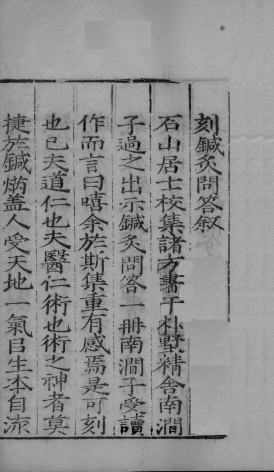 刻鍼灸問答叙
石山居士校集諸方書于朴墅精舍南澗
子過之出示鍼灸問答一冊南澗子受讀
作而言曰嘻余於斯集重有感焉是可刻
也已夫道仁也夫醫仁術也術之神者莫
捷於鍼焫盖人受天地一氣㠯生本自流